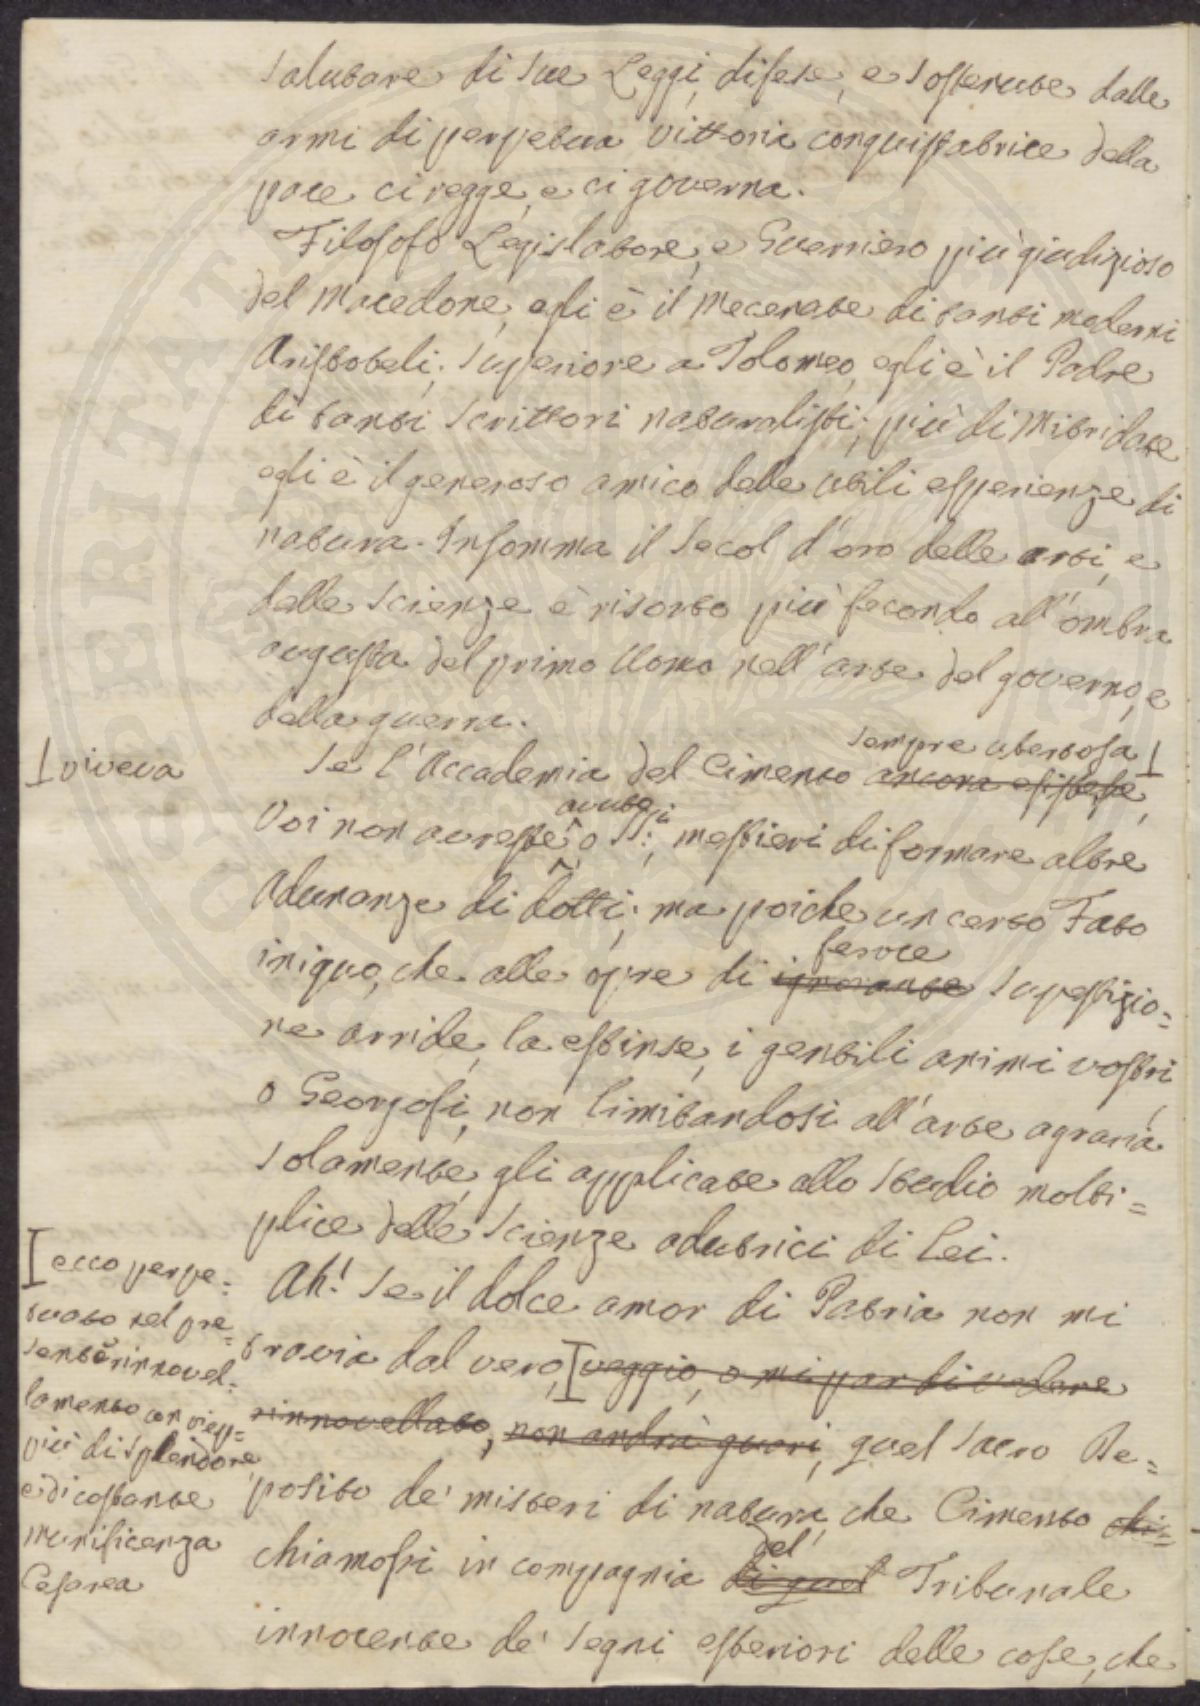 salutare di sue Leggi, difese, e sostenute dalle
armi di perpetua vittoria conquistatrice della
pace ci regge, e ci governa.
Filosofo Legislatore, e Guerriero più giudizioso
del Macedone, egli è il Mecenate di tanti moderni
Aristoteli; superiore a Tolomeo, egli è il Padre
di tanti scrittori naturalisti; più di Mitridate
egli è il generoso amico delle utili esperienze di
natura. Insomma il secol d'oro delle arti, e
delle scienze è risorto più fecondo all'ombra
augusta del primo Uomo nell'arte del governo, e
della guerra.
sempre ubertosa
viveva
Se l'Accademia del Cimento ancora esistesse,
avuto
Voi non avreste, o SS:ri, mestieri di formare altre
Adunanze di dotti; ma poiche un certo Fato
feroce
iniquo, che alle opre di ignorante supestizio=
ne arride, la estinse, i gentili animi vostri
o Georgofi, non limitandosi all'arte agraria
solamente, gli applicate allo studio molti=
plice delle scienze adutrici di Lei.
Ah! se il dolce amor di Patria non mi
travia dal vero, veggio, o mi par di vedere
rinnovellato, non andrà guari, quel sacro De=
posito de' misteri di natura, che Cimento chi=
del
chiamossi in compagnia di quel Tribunale
innocente de' segni esteriori delle cose, che
ecco perpe=
tuato nel pre=
sente rinnovel=
lamento con viep=
più di splendore,
e di costante
munificenza
Cesarea
COSPERITATI PUBLICAE